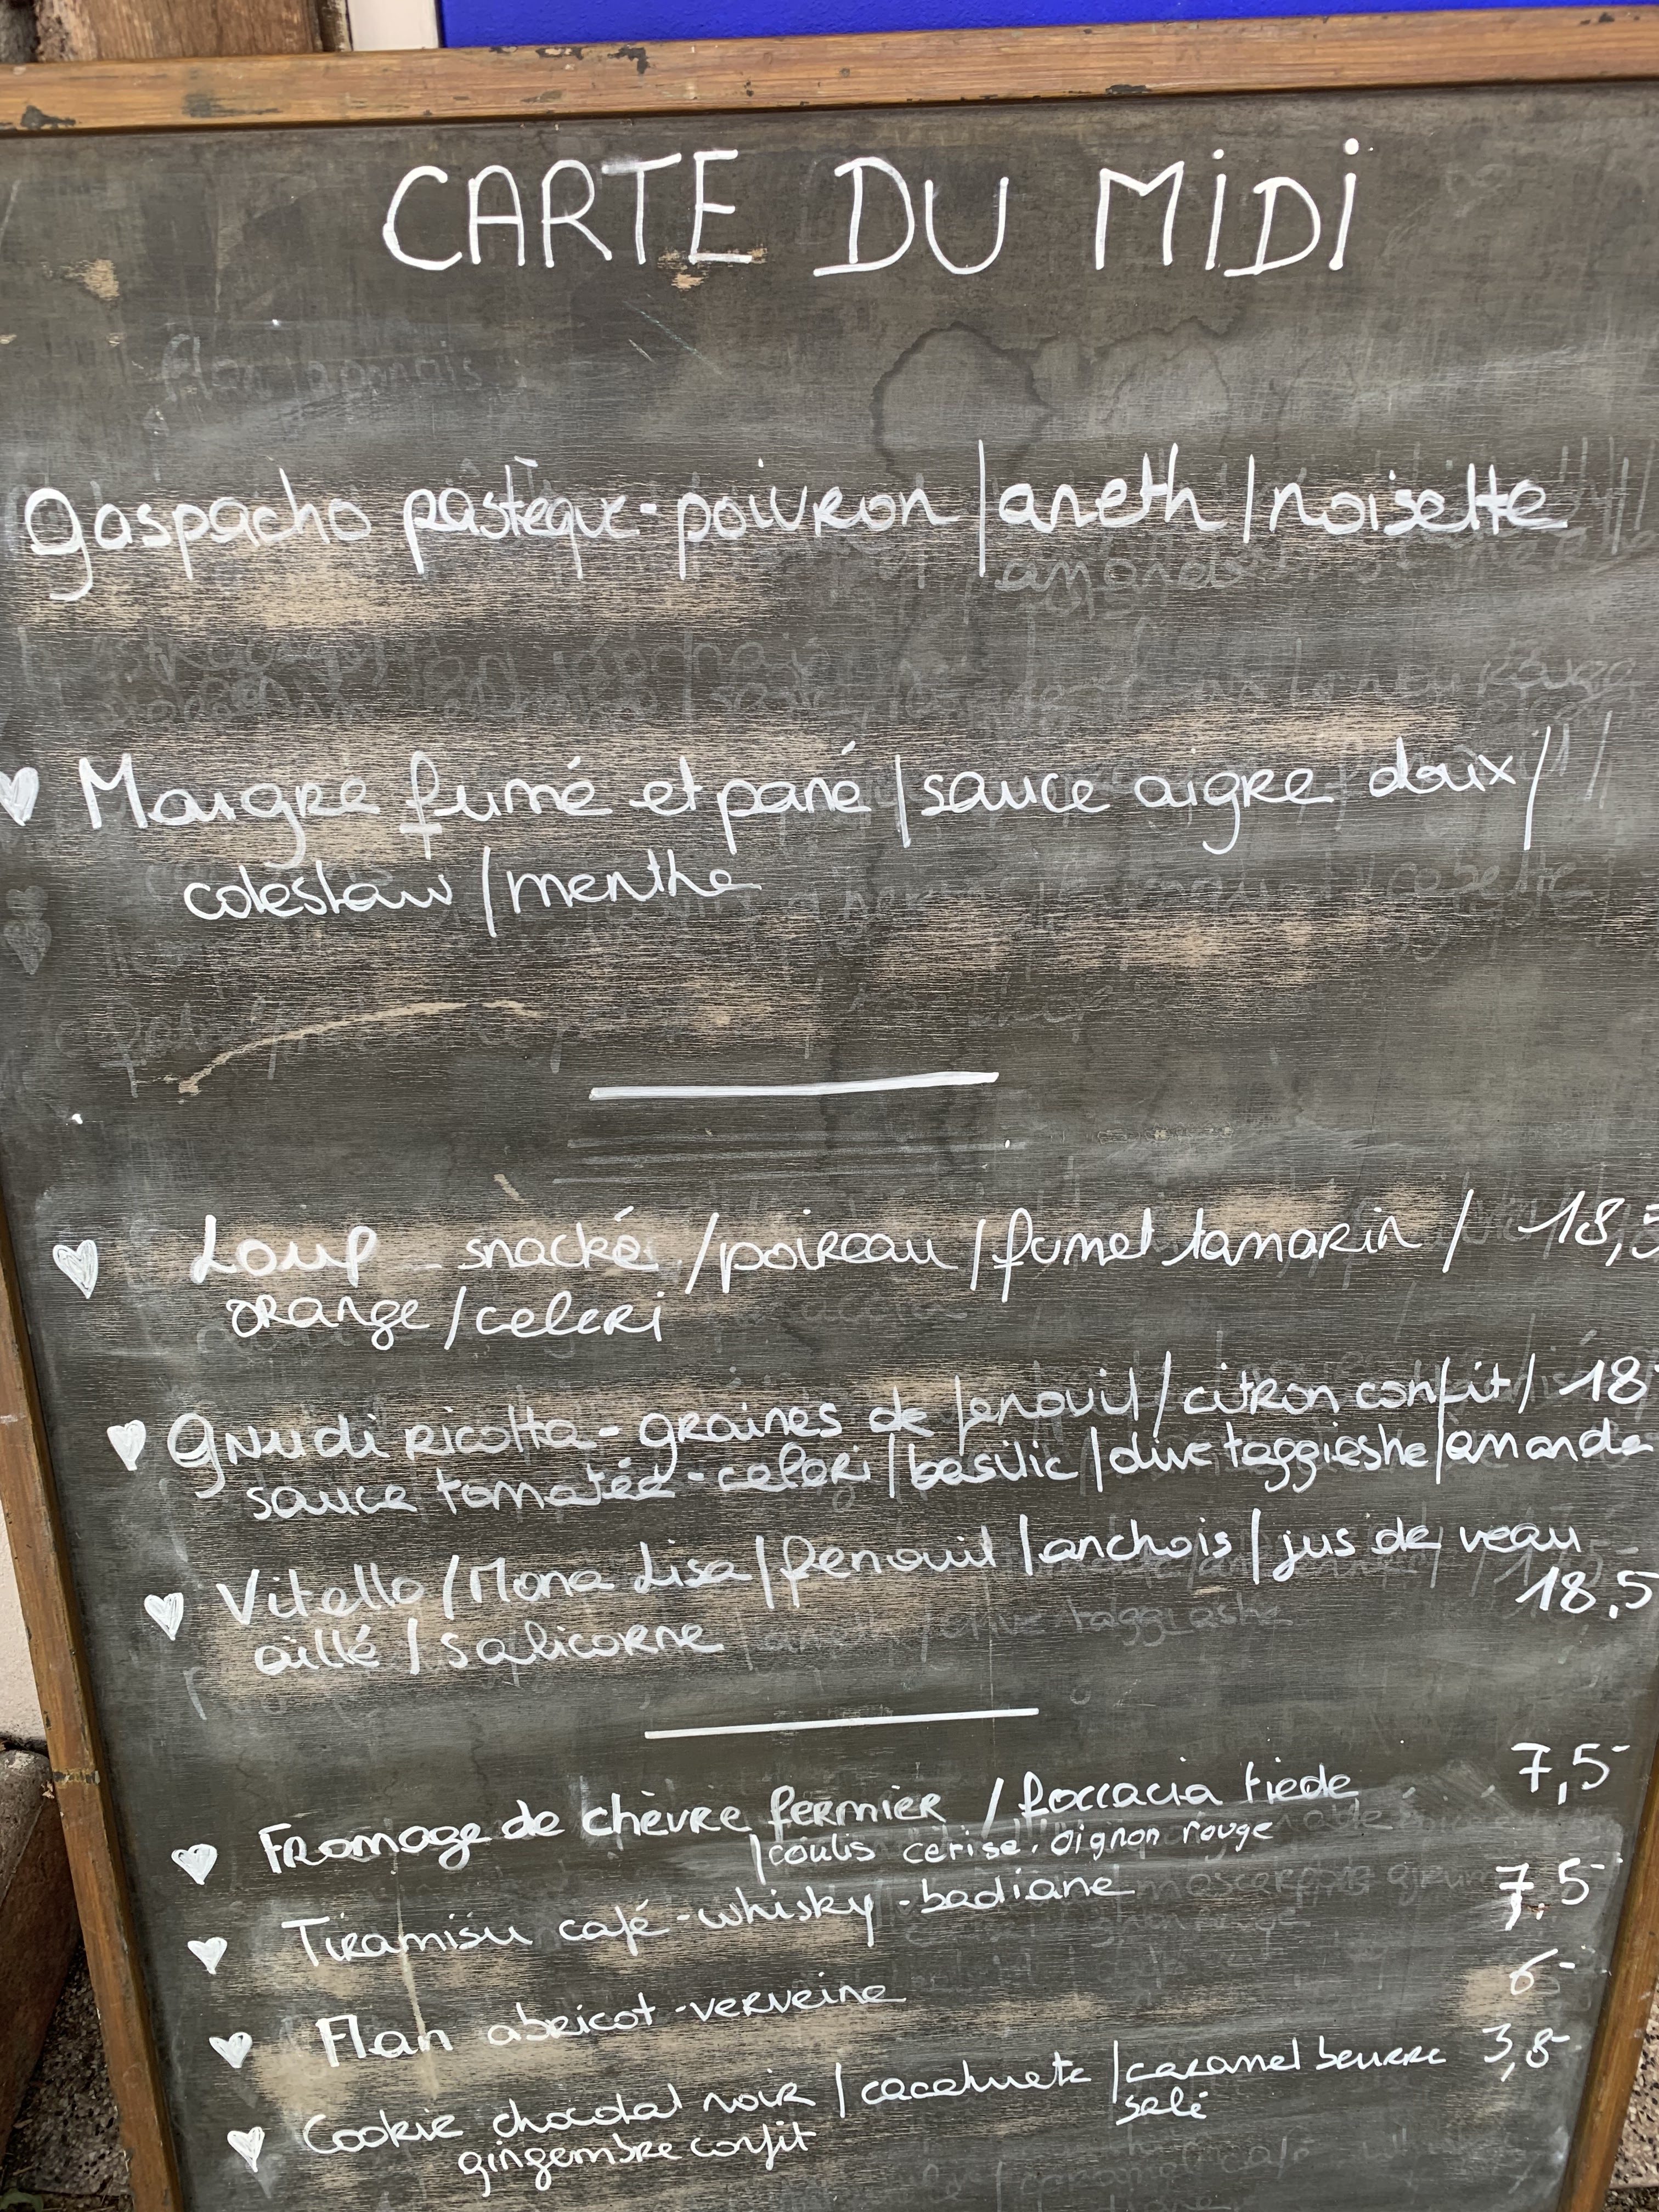 CARTE DU MiDi
gaspacho pastèque-poivron | aneth | noisette
Maigre fumé et pané | sauce aigre doux /
coleslaw / menthe
Loup - snacké / poireau / fumet tamarin / 18,5
orange / celeri
gnudi ricotta - graines de fenouil / citron confit / 18
sauce tomatée - celeri | basilic | olive taggieshe | amande
Vitello / Mona Lisa | fenouil | anchois | jus de veau
aillé / salicorne 18,5
Fromage de chèvre fermier / foccacia tiede 7,5-
| coulis cerise. oignon rouge
Tiramisu café - whisky - badiane 7,5-
Flan abricot - verveine 6-
Cookie chocolat noir / cacahuete / caramel beurre 3,8-
salé
gingembre confit